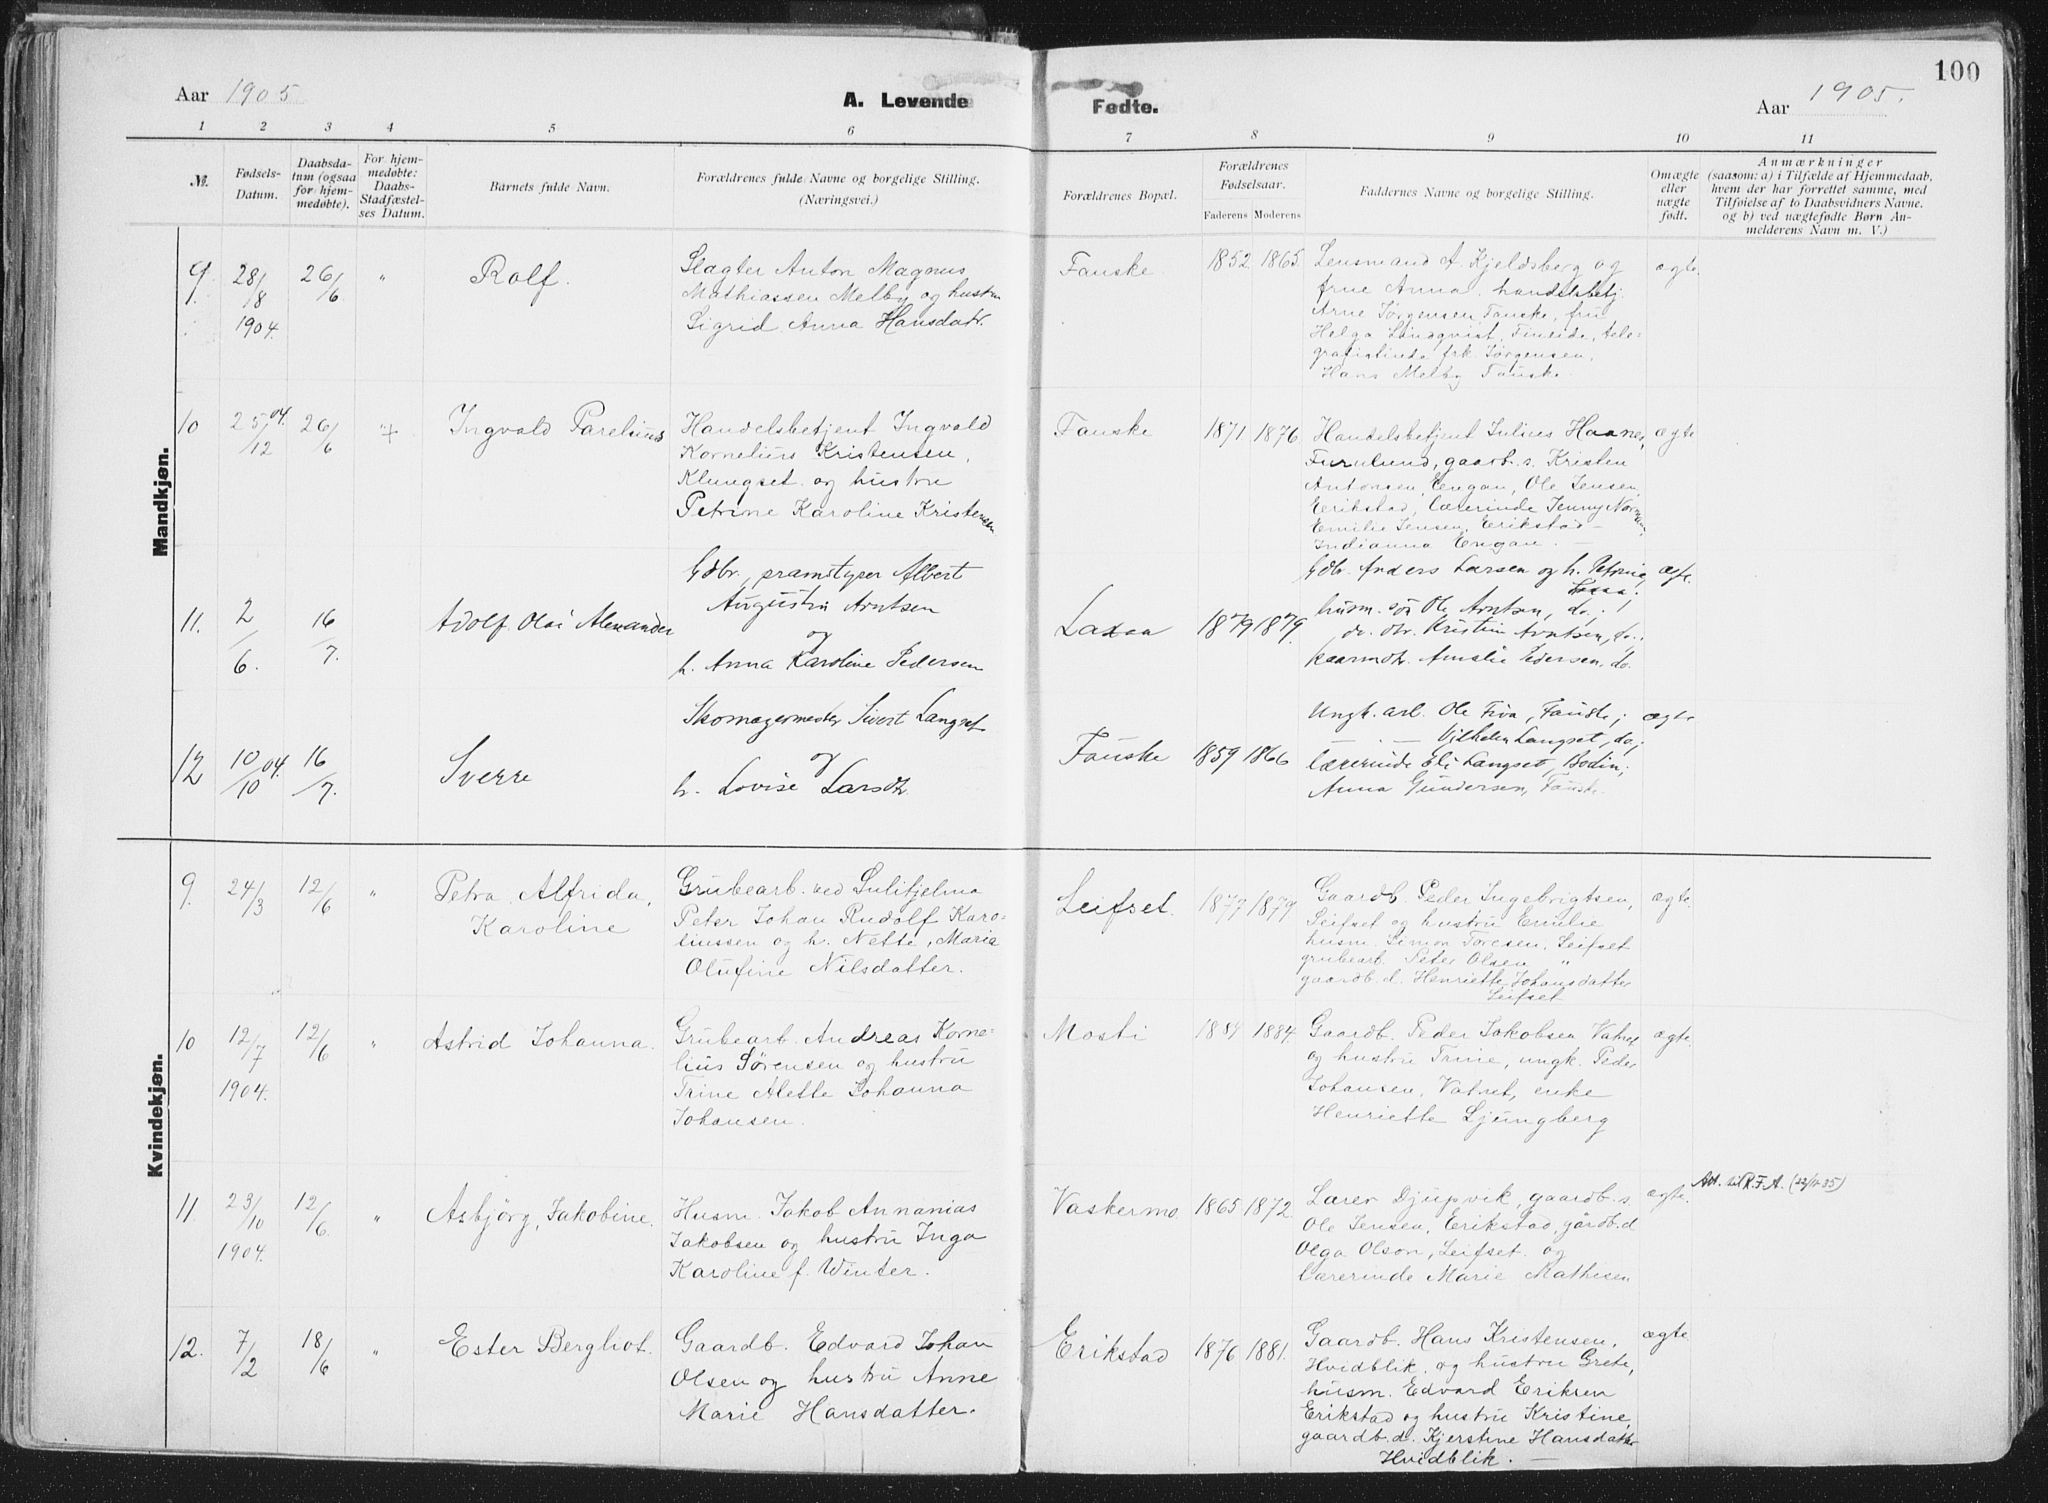 Aar 1905
A. Levende
Fødte.
Aar 1905.
100
1 2 3 4 5 6 7 8 9 10 11
№.
Fødsels-
Datum.
Daabsda-
tum (ogsaa
for hjem-
medøbte).
For hjem-
medøbte:
Daabs-
Stadfæstel-
ses Datum.
Barnets fulde Navn.
Forældrenes fulde Navne og borgelige Stilling.
(Næringsvei.)
Forældrenes Bopæl.
Forældrenes
Fødselsaar.
Faderens Moderens
Faddernes Navne og borgelige Stilling.
Omægte
eller
uægte
født.
Anmærkninger
(saasom: a) i Tilfælde af Hjemmedaab,
hvem der har forrettet samme, med
Tilføielse af to Daabsvidners Navne.
og b) ved uægtefødte Børn An-
melderens Navn m. V.)
Mandkjøn.
9. 28/8 1904. 26/6 " Rolf.
Slagter Anton Magnus
Mathiassen Melby og hustru
Sigrid Anna Hansdatr.
Fauske 1852 1865
Lensmand A. Kjeldsberg og
frue Anna. handelsbetj.
Arne Jørgensen Fauske, fru
Helga Lindqvist, Fineide, tele-
grafistinde frk. Jørgensen,
Hans Melby Fauske.
ægte
10 25/12 04. 26/6 "+ Ingvald Parelius
Handelsbetjent Ingvald
Kornelius Kristensen,
Klungset og hustru
Petrine Karoline Kristensen
Fauske 1871 1876
Handelsbetjent Julius Haanes,
Furulund, gaardb. s. Kristen
Antonsen, Engan, Ole Jensen,
Erikstad, Lærerinde Jenny Normann,
Emilie Jensen, Erikstad —
Indianna Engan. —
ægte
11. 2/6. 16/7. Adolf Olai Alexander
Gdbr., pramstyrer Albert
Augustin Arntsen
og
h. Anna Karoline Pedersen
Laxaa 1879 1879.
Gdbr. Anders Larsen og h. Petrine,
Laxaa.
husm. søn Ole Arntsen, do. !
do. dtr. Kristin Arntsen, do.;
Amalie Pedersen, do.
ægte.
12 10/10 04. 16/7. Sverre
Skomagermester Sivert Langset
og
h. Lovise Larsdtr.
Fauske 1859 1866
Ungk. arb. Ole Fiva, Fauske;
— . — Vilhelm Langset, do;
lærerinde Eli Langset, Bodin;
Anna Gundersen, Fauske.
ægte
Kvindekjøn.
9. 24/3 12/6 " Petra Alfrida,
Karoline
Grubearb. ved Sulitjelma
Peter Johan Rudolf Karo-
liussen og h. Nette, Maria
Olufine Nilsdatter.
Leifset. 1877 1879
Gaardb. Peder Ingebrigtsen,
Leifset og hustru Emilie
husm. Simon Toresen, Leifset
grubearb. Peter Olsen "
gaardb. d. Henriette Johansdatter
Leifset
ægte.
10 12/7 1904. 12/6 " Astrid Johanna.
Grubearb. Andreas Korne-
lius Sørensen og hustru
Trine Alette Johanna
Johansen.
Mosti 1884.
Gaardb. Peder Jakobsen Vatnet
og hustru Trine, ungk. Peder
Johansen, Vatnet, enke
Henriette Ljungberg
ægte.
11. 23/10 1904. 12/6. " Asbjørg, Jakobine.
Husm. Jakob Annanias
Jakobsen og hustru Inga
Karoline f. Winter.
Vaskermo 1865 1872.
Lærer Djupvik, gaardb. s.
Ole Jensen, Erikstad, gårdb. d.
Olga Olson, Leifset. og
lærerinde Marie Mathisen
ægte.
Att. til R.F.A.
12. 7/2 18/6 " Ester Bergliot.
Gaardb. Edvard Johan
Olsen og hustru Anne
Marie Hansdatter.
Erikstad 1876 1881.
Gaardb. Hans Kristensen,
Hvidblik, og hustru Grete,
husm. Edvard Eriksen
Erikstad og hustru Kristine,
gaardb. d. Kjerstine Hansdatter
Hvidblik. —
ægte